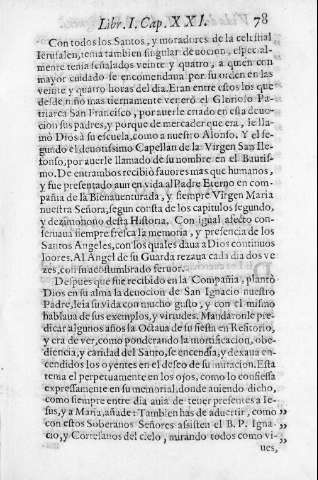 Libr. I. Cap. XXI. 78
Con todos los Santos, y moradores de la celestial
Ierusalen, tenia tambien singular deuocion, especial-
mente tenia señalados veinte y quatro, a quien con
mayor cuidado se encomendaua por su orden en las
veinte y quatro horas del dia. Eran entre estos los que
desde niño mas tiernamente venerò el Glorioso Pa-
triarca San Francisco, por auerle criado en esta deuo-
cion sus padres, y porque de mercader que era, le lla-
mò Dios à su escuela, como a nuestro Alonso. Y el se-
gundo el deuotissimo Capellan de la Virgen San Ile-
fonso, por auerle llamado de su nombre en el Bautis-
mo. De entrambos recibiò fauores mas que humanos,
y fue presentado aun en vida al Padre Eterno en com-
pañia de la Bienauenturada, y siempre Virgen Maria
nuestra Señora, segun consta de los capitulos segundo,
y dezimonono desta Historia. Con igual afecto con-
seruaua siempre fresca la memoria, y presencia de los
Santos Angeles, con los quales daua a Dios continuos
loores. Al Angel de su Guarda rezaua cada dia dos ve
zes, con su acostumbrado feruor.
Despues que fue recibido en la Compañia, plantò
Dios en su alma la deuocion de San Ignacio nuestro
Padre, leia su vida con mucho gusto, y con el mismo
hablaua de sus exemplos, y virtudes. Mandaronle pre-
dicar algunos años la Octaua de su fiesta en Refitorio,
y era de ver, como ponderando la mortificacion, obe-
diencia, y caridad del Santo, se encendia, y dexaua en-
cendidos los oyentes en el deseo de su imitacion. Esta
tenia el perpetuamente en los ojos, como lo confiessa
expressamente en su memorial, donde auiendo dicho,
como siempre entre dia auia de tener presentes a Ie-
sus, y a Maria, añade: Tambien has de aduertir, como „
con estos Soberanos Señores assisten el B. P. Igna- „
cio, y Cortesanos del cielo, mirando todos como vi- „
ues,